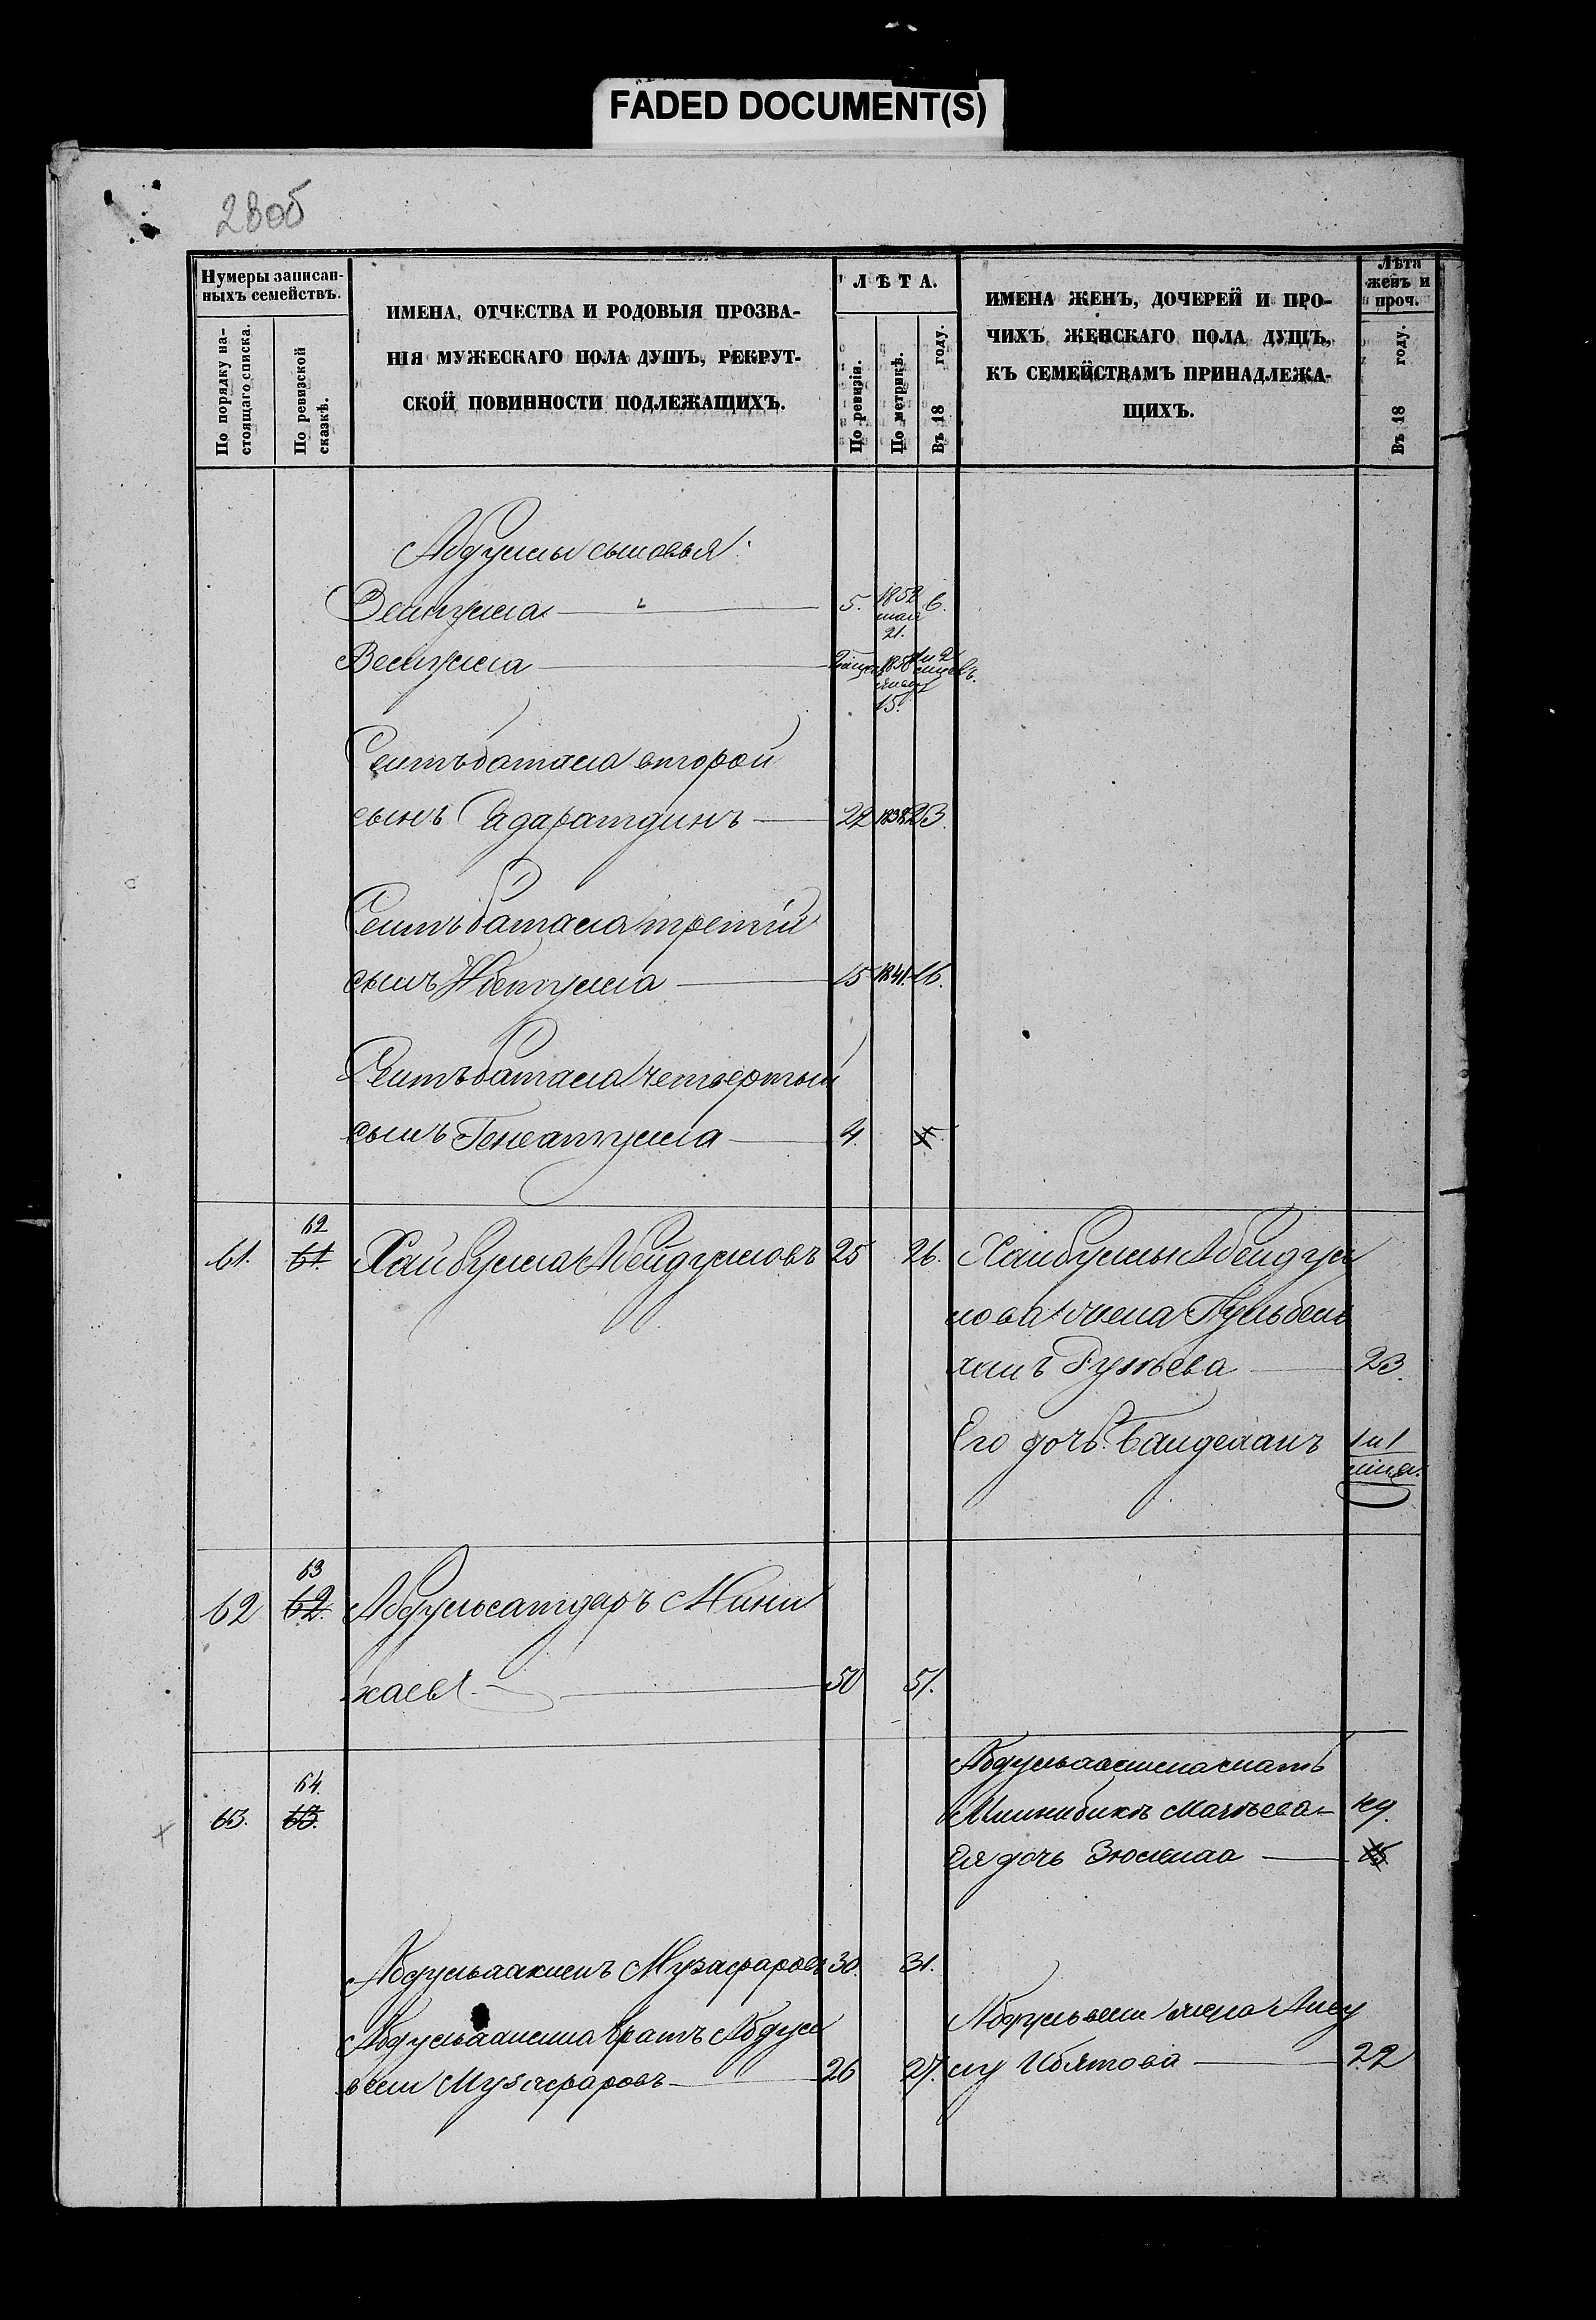 FADED DOCUMENT(S)
2805
Нумеры записан-
ныхъ семействъ.
По порядку на-
стоящаго списка.
По ревизской
сказкѣ.
ИМЕНА, ОТЧЕСТВА И РОДОВЫЯ ПРОЗВА-
НІЯ МУЖЕСКАГО ПОЛА ДУШЪ, РЕКРУТ-
СКОЙ ПОВИННОСТИ ПОДЛЕЖАЩИХЪ.
ЛѢТА.
По ревизіи.
По метрикѣ.
Въ 18 году.
ИМЕНА ЖЕНЪ, ДОЧЕРЕЙ И ПРО-
ЧИХЪ ЖЕНСКАГО ПОЛА ДУШЪ,
КЪ СЕМЕЙСТВАМЪ ПРИНАДЛЕЖА-
ЩИХЪ.
Лѣта
женъ и
проч.
Въ 18 году.
Абдуллы сыновья:
5. 1852 мая 21. 6.
15.
Сеитъбатала второй
сынъ Садаратдинъ 22 1838 23.
Сеитъбатала третій
сынъ 15 1841. 16.
Сеитъбатала четвертый
сынъ Генеатулла 4. 5
61. 62 61. Хайбулла Абейдулловъ 25 26. Хайбуллы Абейдул
лова жена Гульбень
23.
Его дочь 1 и 1
62 63 62. Абдульсатдаръ Мини
каевъ 50 51.
63. 64. 63. мать
49.
Ея дочь 15
Абдульхакимъ Музафаровъ 30. 31.
братъ Абдул
Музафаровъ 26 27. жена
Ибятова 22